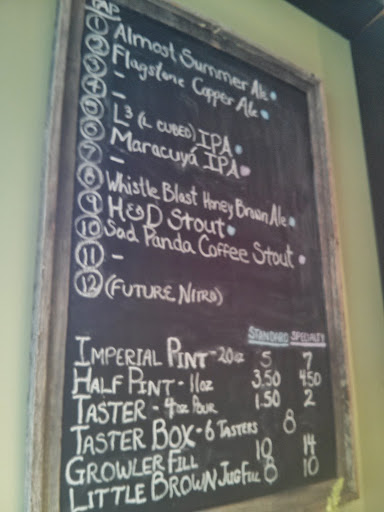 TAP
1 Almost Summer Ale
2 Flagstone Copper Ale
3 -
4 -
5 L³ (L CUBED) IPA
6 Maracuyá IPA
7 -
8 Whistle Blast Honey Brown Ale
9 H&D Stout
10 Sad Panda Coffee Stout
11 -
12 (FUTURE NITRO)
STANDARD SPECIALTY
IMPERIAL PINT - 20oz 5 7
HALF PINT - 11oz 3.50 4.50
TASTER - 4oz POUR 1.50 2
TASTER BOX - 6 TASTERS 8
GROWLER FILL 10 14
LITTLE BROWN JUG FILL 8 10